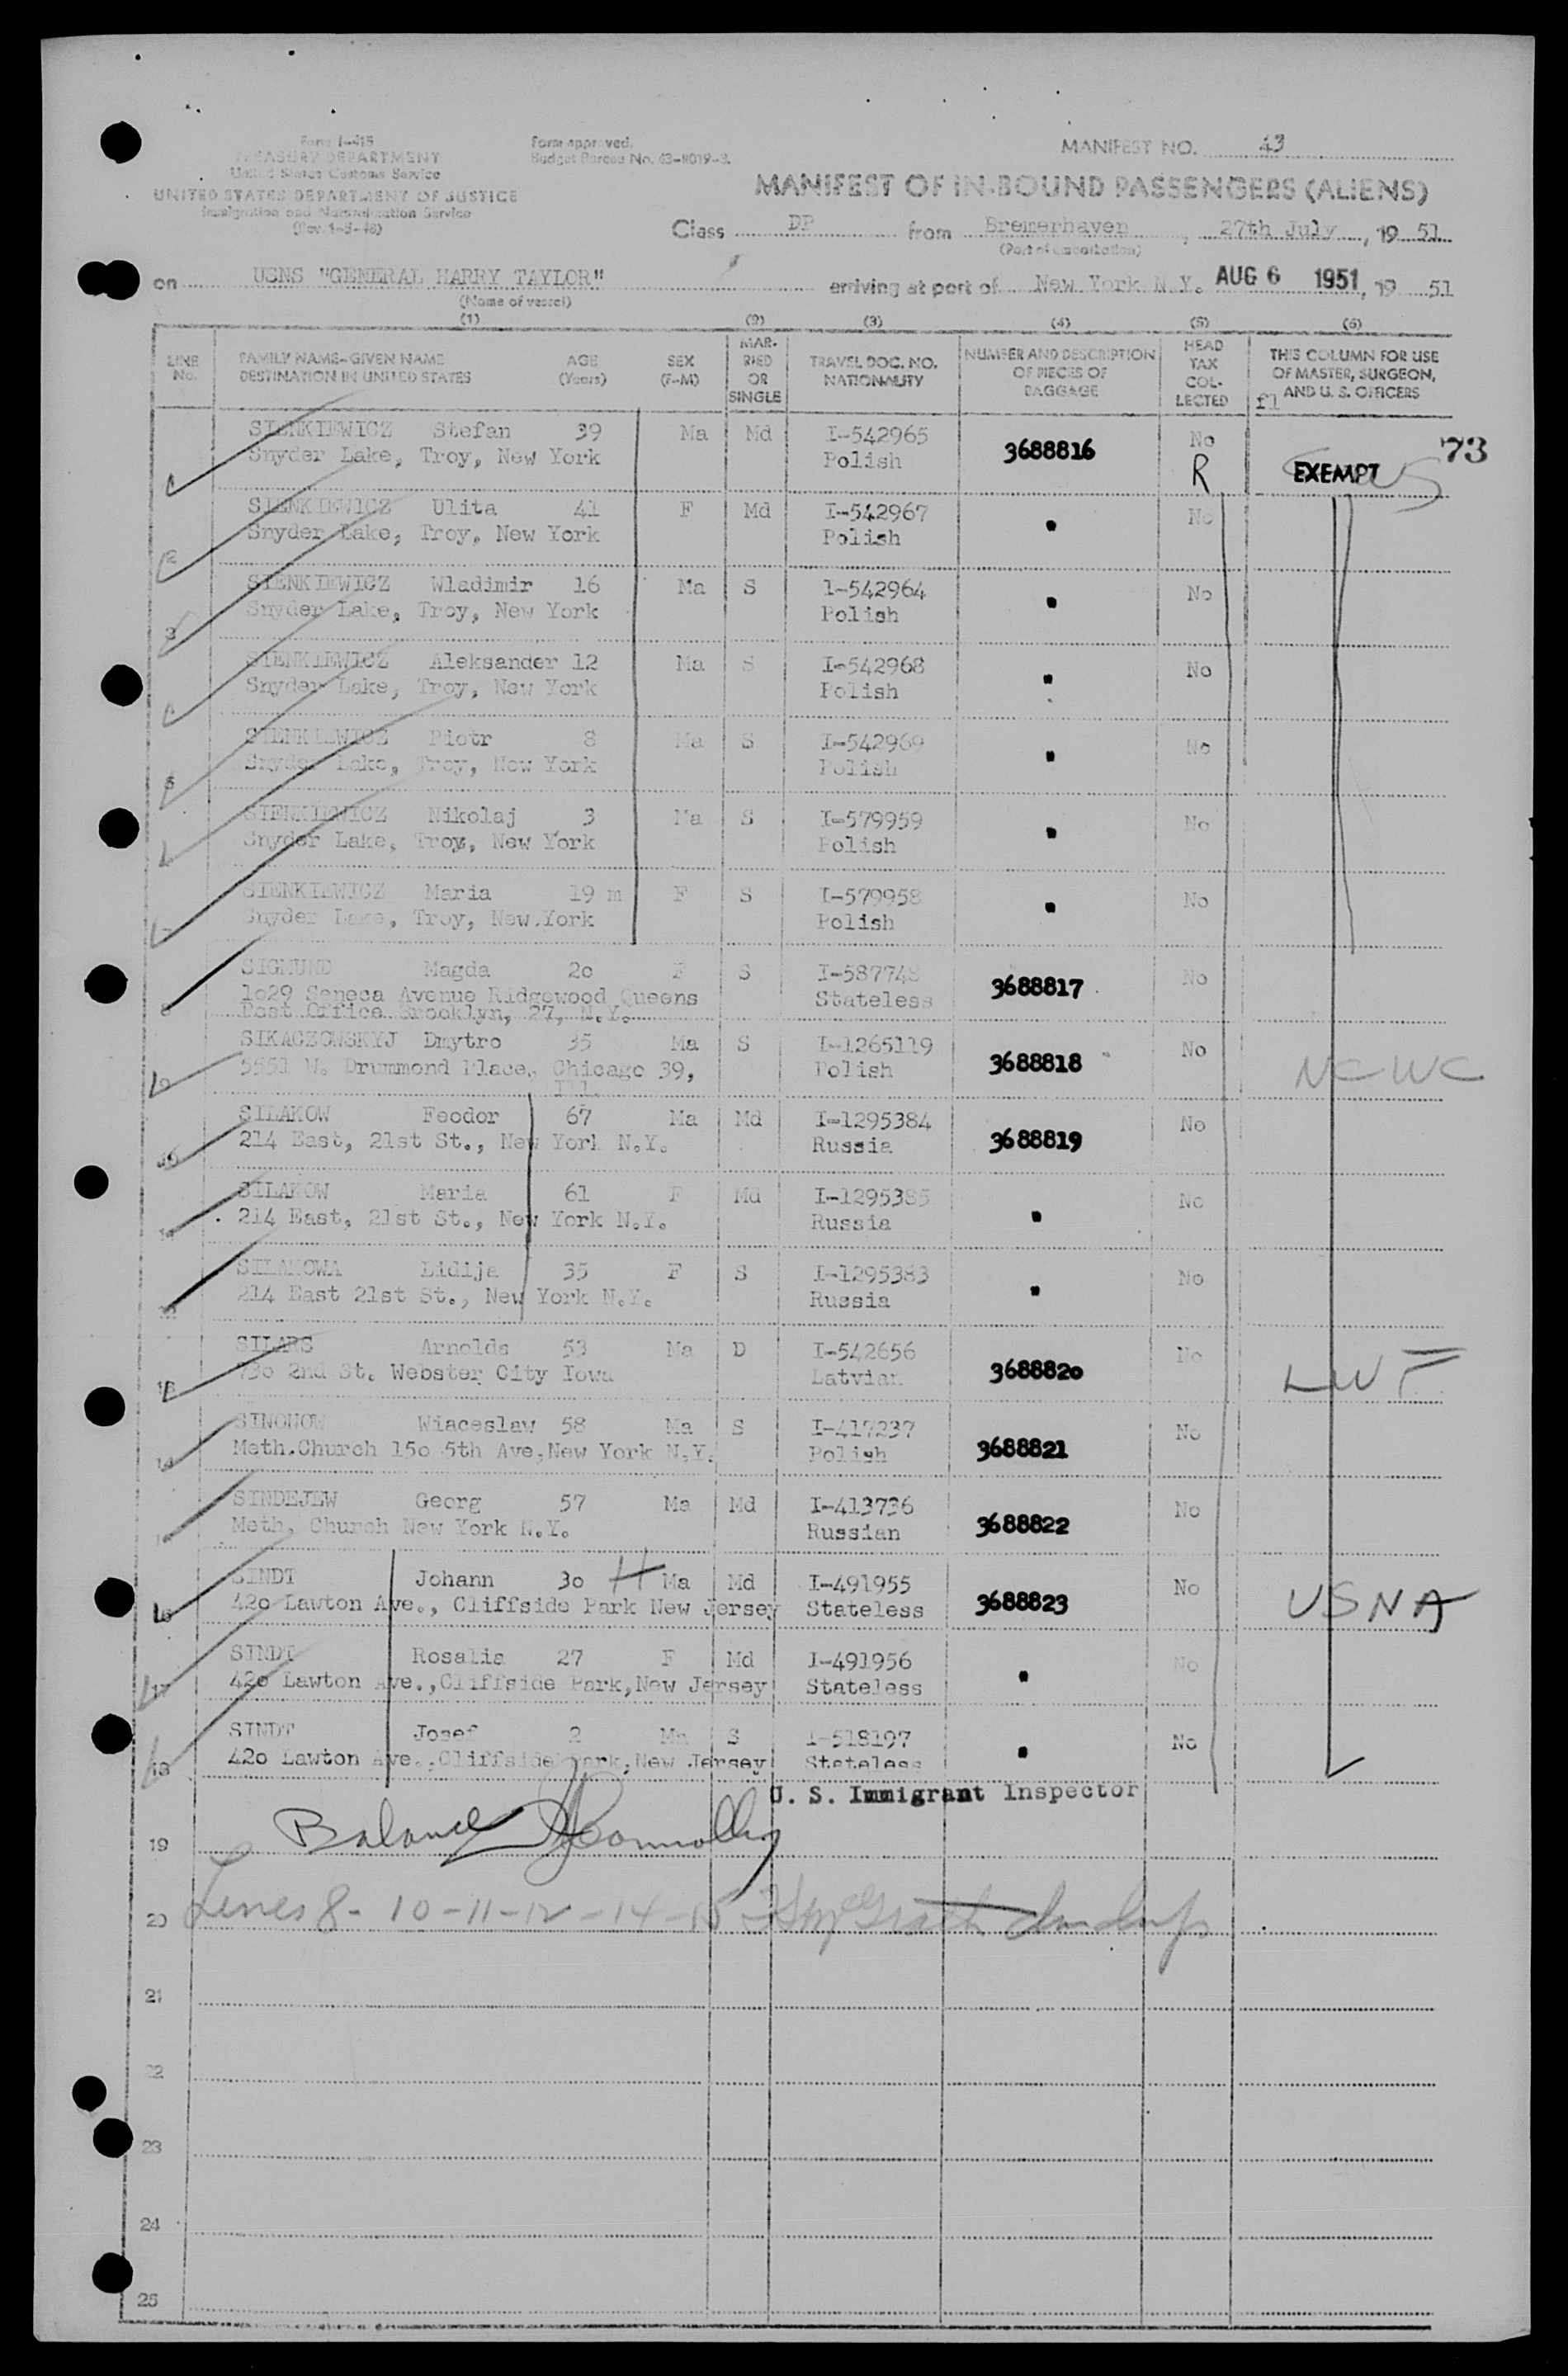 Form I-415
TREASURY DEPARTMENT
United States Customs Service
UNITED STATES DEPARTMENT OF JUSTICE
Immigration and Naturalization Service
(Rev. 1-5-48)
Form approved.
Budget Bureau No. 43-R019-3.
MANIFEST NO. 43
MANIFEST OF IN-BOUND PASSENGERS (ALIENS)
Class DP from Bremerhaven, 27th July, 19 51
(Port of embarkation)
on USNS "GENERAL HARRY TAYLOR" arriving at port of New York N.Y. AUG 6 1951, 19 51
(Name of vessel)
(1) (2) (3) (4) (5) (6)
LINE No. FAMILY NAME-GIVEN NAME DESTINATION IN UNITED STATES AGE (Years) SEX (F-M) MARRIED OR SINGLE TRAVEL DOC. NO. NATIONALITY NUMBER AND DESCRIPTION OF PIECES OF BAGGAGE HEAD TAX COLLECTED THIS COLUMN FOR USE OF MASTER, SURGEON, AND U. S. OFFICERS
fl
SIENKIEWICZ Stefan 39 Ma Md I-542965 3688816 No 73
Snyder Lake, Troy, New York Polish R EXEMPT
2 SIENKIEWICZ Ulita 41 F Md I-542967 " No
Snyder Lake, Troy, New York Polish
3 SIENKIEWICZ Wladimir 16 Ma S I-542964 " No
Snyder Lake, Troy, New York Polish
SIENKIEWICZ Aleksander 12 Ma S I-542968 " No
Snyder Lake, Troy, New York Polish
5 SIENKIEWICZ Piotr 8 Ma S I-542969 " No
Snyder Lake, Troy, New York Polish
SIENKIEWICZ Nikolaj 3 Ma S I-579959 " No
Snyder Lake, Troy, New York Polish
7 SIENKIEWICZ Maria 19 m F S I-579958 " No
Snyder Lake, Troy, New York Polish
8 SIGMUND Magda 2o F S I-587748 3688817 No
1o29 Seneca Avenue Ridgewood Queens Stateless
Post Office Brooklyn, 27, N.Y.
9 SIKACZOWSKYJ Dmytro 35 Ma S I-1265119 3688818 No NCWC
5551 W. Drummond Place, Chicago 39, Polish
Ill.
10 SILAKOW Feodor 67 Ma Md I-1295384 3688819 No
214 East, 21st St., New York N.Y. Russia
11 SILAKOW Maria 61 F Md I-1295385 " No
214 East, 21st St., New York N.Y. Russia
12 SILAKOWA Lidija 35 F S I-1295383 " No
214 East 21st St., New York N.Y. Russia
13 SILARS Arnolds 53 Ma D I-542656 3688820 No LWF
73o 2nd St. Webster City Iowa Latvian
14 SINONOW Wiaceslaw 58 Ma S I-417237 3688821 No
Meth.Church 15o 5th Ave,New York N.Y. Polish
15 SINDEJEW Georg 57 Ma Md I-413736 3688822 No
Meth, Church New York N.Y. Russian
16 SINDT Johann 3o H Ma Md I-491955 3688823 No USNA
42o Lawton Ave., Cliffside Park New Jersey Stateless
17 SINDT Rosalia 27 F Md I-491956 " No
42o Lawton Ave.,Cliffside Park,New Jersey Stateless
18 SINDT Josef 2 Ma S I-518197 " No
42o Lawton Ave.,Cliffside Park,New Jersey Stateless
U. S. Immigrant Inspector
19 Balance Connolly
20 Lines 8-10-11-12-14-15
21
22
23
24
25